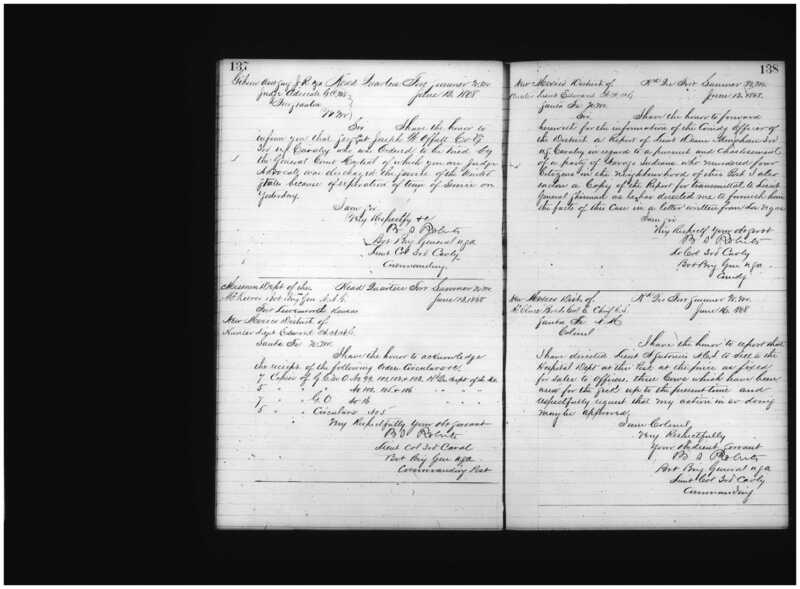 137
Head Quarters Fort Sumner N.M.
June 12. 1868
Judge Advocate G.C.M.
Fort Stanton
N.M.
Sir I have the honor to
inform you that Joseph W.
Cavalry who was Ordered to be tried by
the General Court Martial of which you are Judge
Advocate was discharged the service of the United
States because of expiration of term of service on
Yesterday.
I am Sir
Very Respectfy &c
B S Roberts
Bvt Brig General USA
Lieut Col 3rd Cavly
Commanding
Missouri Dept of the
McKeever Bvt Brig Gen A.A.G.
Fort Leavenworth Kansas
Head Quarters Fort Sumner N.M.
June 12. 1868
New Mexico District of
Hunter Edward
Santa Fe N.M.
I have the honor to acknowledge
the receipt of the following Orders Circulars &c
7 Copies of
5
7 " " G.O.
5 " " Circulars No 5
Very Respectfully Your Obt Servant
B S Roberts
Lieut Col 3rd Caval
Bvt Brig Gen USA
Commanding Post
138
New Mexico District of
Hunter Lieut Edward
Santa Fe N.M.
Hd Qrs Fort Sumner N.M.
June 12. 1868.
Sir I have the honor to forward
herewith for the information of the Comdg Officer of
the District a Report of Lieut Deane Monahan 3rd
US Cavalry in regard to a pursuit and Chastisement
of a party of Navajo Indians who murdered four
Citizens in the Neighbourhood of this Post. I also
enclose a Copy of the Report for transmittal to Lieut
General Sherman as he has directed me to furnish him
the facts of this Case in a letter written from Los Vegas
I am Sir
Very Respect Your Obt Servt
B S Roberts
Lt Col 3rd Cavly
Bvt Brig Gen USA
Comdg
New Mexico Dist of
Chief C.S.
Santa Fe N.M.
Colonel
Hd Qrs Fort Sumner N.M.
June 16. 1868
I have the honor to report that
I have directed Lieut to sell to the
Hospital Dept at this Post at the price as fixed
for sales to Officers, three Cows which have been
used for the up to the present time and
respectfully request that my action in so doing
may be approved,
I am Colonel
Very Respectfully
Your Obedient Servant
B S Roberts
Bvt Brig General USA
Lieut Col 3rd Cavly
Commanding